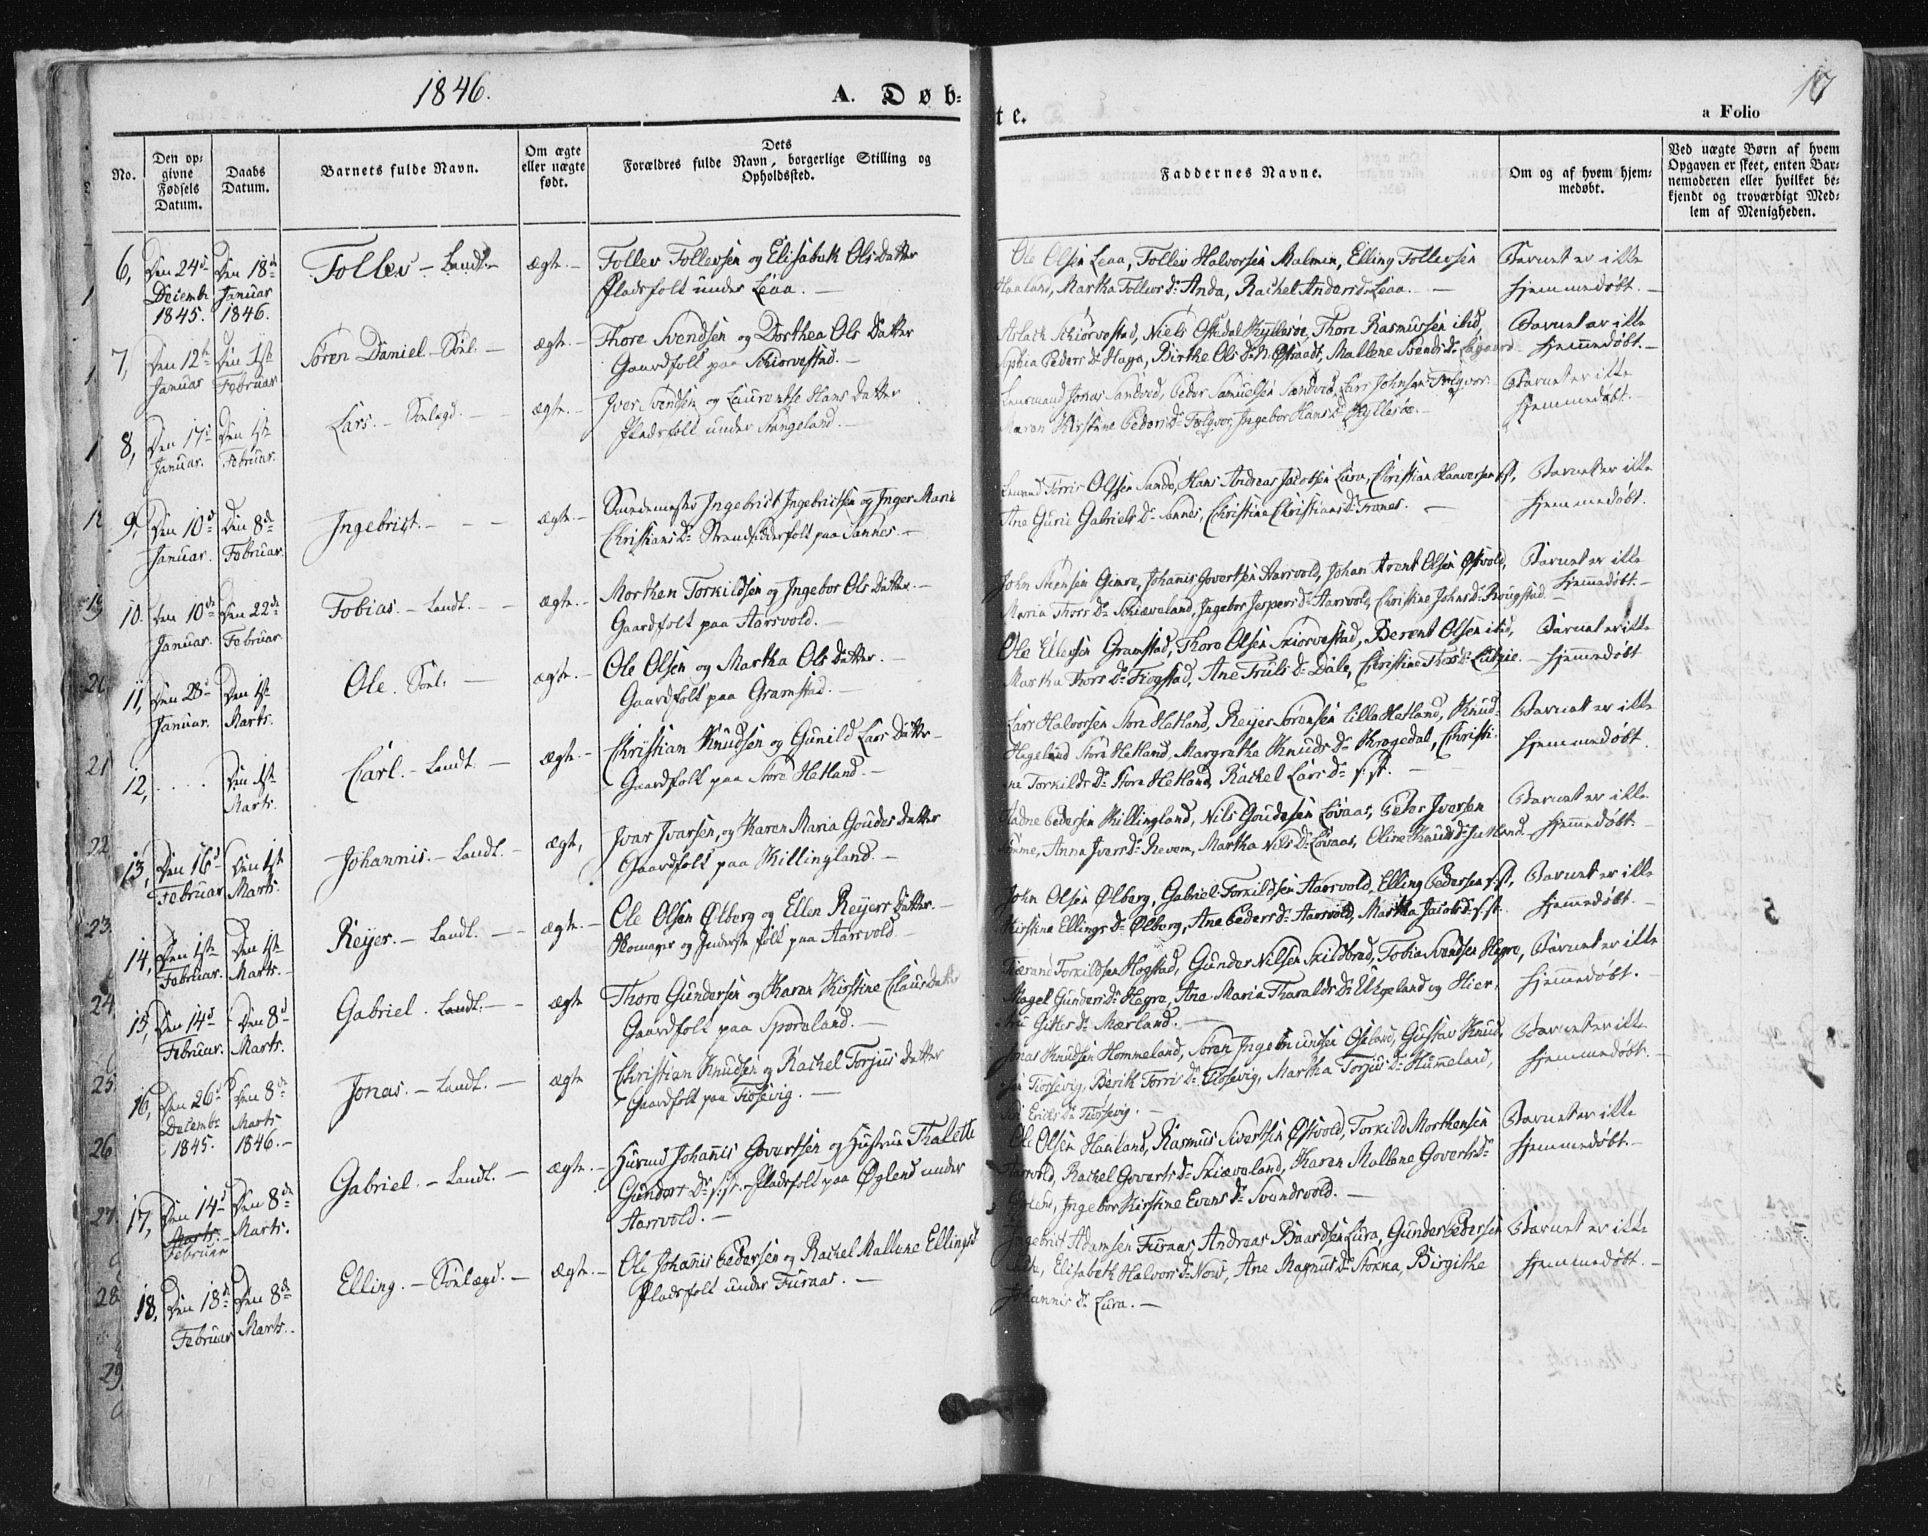 1846.
A. Døb=
te.
17
a Folio
No.
Den op=
givne
Fødsels
Datum.
Daabs
Datum.
Barnets fulde Navn.
Om ægte
eller uægte
født.
Dets
Forældres fulde Navn, borgerlige Stilling og
Opholdssted.
Faddernes Navne.
Om og af hvem hjem=
medøbt.
Ved uægte Børn af hvem
Opgaven er skeet, enten Bar=
nemoderen eller hvilket be=
kjendt og troværdigt Med=
lem af Menigheden.
6, Den 24de Den 18de Tollev – Landt. – ægte. – Tollev Tollevsen og Elisabeth Ols Datter
Decembr Januar Pladsfolk under Leaa. –
1845. 1846.
Ole Olsen Leaa, Tollev Halvorsen Malmin, Elling Tollevsen
Haaland, Martha Tollevs Dr Anda, Rachel Anders Dr Leaa. –
Barnet er ikke
hjemmedøbt. –
7, Den 12te Den 1ste Søren Daniel – Sønl. – ægte. – Thore Svendsen og Dorthea Ols Datter
Januar Februar Gaardfolk paa Skiørvestad. –
Aslak Skiørvestad, Niels Osfedal Kyllesøe, Thore Rasmussen ibid,
Sophia Peders Dr Haga, Birthe Ols Dr N. Østraadt, Mallene Svends Dr
Barnet er ikke
hjemmedøbt. –
8, Den 17de Den 1ste Lars. – Sønlagd. – ægte. – Iver Svendsen og Laurentse Hans Datter
Januar. Februar. Pladsfolk under Stangeland. –
Lensmand Jonas Sandved, Peder Samuelsen Sandved, Lars Johnsen Folgvor
Maren Kirstine Peders Dr Folgvor, Ingebor Hans Dr Kyllesøe. –
Barnet er ikke
hjemmedøbt.
9, Den 10de Den 8de Ingebrigt. – – – ægte – Smedemester Ingebrict Ingebrictsen og Inger Maria
Januar. Februar. Christians Dr Strandsidderfolk paa Sannes. –
Torris Olsen Sande, Hans Andreas Jacobsen Lura, Christian
Ane Gurie Gabriels Dr Sannes, Christine Christians Dr Tranes. –
Barnet er ikke
hjemmedøbt.
10. Den 10de Den 22de Tobias. – Landt. – – ægte. – Morthen Torkildsen og Ingebor Ols Datter. –
Januar. Februar. Gaardfolk paa Aarsvold. –
John Steensen Gimre, Johannis Govertsen Aarsvold, Johan Arent Olsen Østvold,
Maria Thors Dr Skiæveland, Ingebor Jespers Dr Aarsvold, Christine Johns Dr Rougstad –
Barnet er ikke
hjemmedøbt. –
11, Den 28de Den 1ste Ole. Sønl. – ægte. – Ole Olsen og Martha Ols Datter. –
Januar. Marts. Gaardfolk paa Gramstad. –
Ole Ellevsen Gramstad, Thore Olsen Skiørvestad, Berent Olsen ibid,
Martha Thors Dr Fiogstad, Ane Truls Dr Dale, Christine Thors Dr Lutsie. –
Barnet er ikke
hjemmedøbt
12, . . . . Den 1ste Carl. – Landt. – ægte. – Christian Knudsen og Gunild Lars Datter –
Marts. Gaardfolk paa Store Hetland. –
Lars Halvorsen Store Hetland, Reyer Sørensen Lilla Hetland, Knud
Hegeland Store Hetland, Margretha Knuds Dr Krogedal, Christi
ne Torkilds Dr Store Hetland, Rachel Lars Dr s. st. –
Barnet er ikke
hjemmedøbt.
13, Den 16de Den 1ste Johannis. – Landt. – ægte, Ivar Ivarsen, og Karen Maria Goudes Datter
Februar Marts. Gaardfolk paa Killingland. –
Hadne Pedersen Killingland, Nils Goudesen Lovaas, Peder Iversen
Somme, Anna Ivers Dr Revem, Martha Nils Dr Lovaas, Oline Knuds Dr
Barnet er ikke
hjemmedøbt. –
14, Den 1ste Den 1ste Reyer. – Landt. – – ægte. – Ole Olsen Ølberg og Ellen Reyers Datter –
Februar. Marts. – og Inderste folk paa Aarsvold –
John Olsen Ølberg, Gabriel Torkildsen Aarsvold, Elling Pedersen s. st,
Kirstine Ellings Dr Ølberg, Ane Peders Dr Aarsvold, Martha Jacobs Dr s. st
Barnet er ikke
hjemmedøbt. –
15, Den 14de Den 8de Gabriel. Landt. – ægte Thore Gundersen og Karen Kirstine Claus Datter
Februar. Marts. Gaardfolk paa Sporaland. –
Torkildsen Hogstad, Gunder Nilsen Skildbred, Tobias Svendsen Hegre,
Gunders Dr Hegre, Ane Maria Tharalds Dr Elkgeland og
Gitles Dr Mærland. –
Barnet er ikke
hjemmedøbt. –
16, Den 26de Den 8de Jonas. – Landt. – ægte Christian Knudsen og Rachel Torjus Datter
Decembr Marts Gaardfolk paa Fiosevig. –
1845. 1846. –
Jonas Knudsen Hommeland, Søren Ingemundsen Osebro, Gustav Knud,
sen Fiosevig, Berith Torris Dr Fiosevig, Martha Torjus Dr Hummeland,
Eriks Dr Fiosevig. –
Barnet er ikke
hjemmedøbt. –
17, Den 14de Den 8de Gabriel. – Landt. – ægte. – Huusmd Johannis Govertsen og Hustrue Thalette
Marts. Marts. Gunders Dr s. st. – Pladsfolk paa Øglend under
Februar Aarsvold. –
Ole Olsen Hanland, Rasmus Sivertsen Østvold, Torkild Morthensen
Aarsvold, Rachel Goverts Dr Skiæveland, Karen Mallene Goverts Dr
Ingebor Kirstine Evens Dr Svendsvold. –
Barnet er ikke
hjemmedøbt. –
18, Den 18de Den 8de Elling. – Sønlægd. – ægte. – Ole Johannis Pedersen og Rachel Mallene Ellings Dr
Februar Marts. Pladsfolk under Furaas. –
Ingebrict Adamsen Furaas, Andreas Baardsen Lura, Gunder Pedersen
Elisabeth Halvors Dr Now, Ane Magnus Dr Stokka, Birgithe
Johannis Dr Lura. –
Barnet er ikke
hjemmedøbt. –
20
21
22
23.
24.
25.
26
27.
28
29
5
31
32